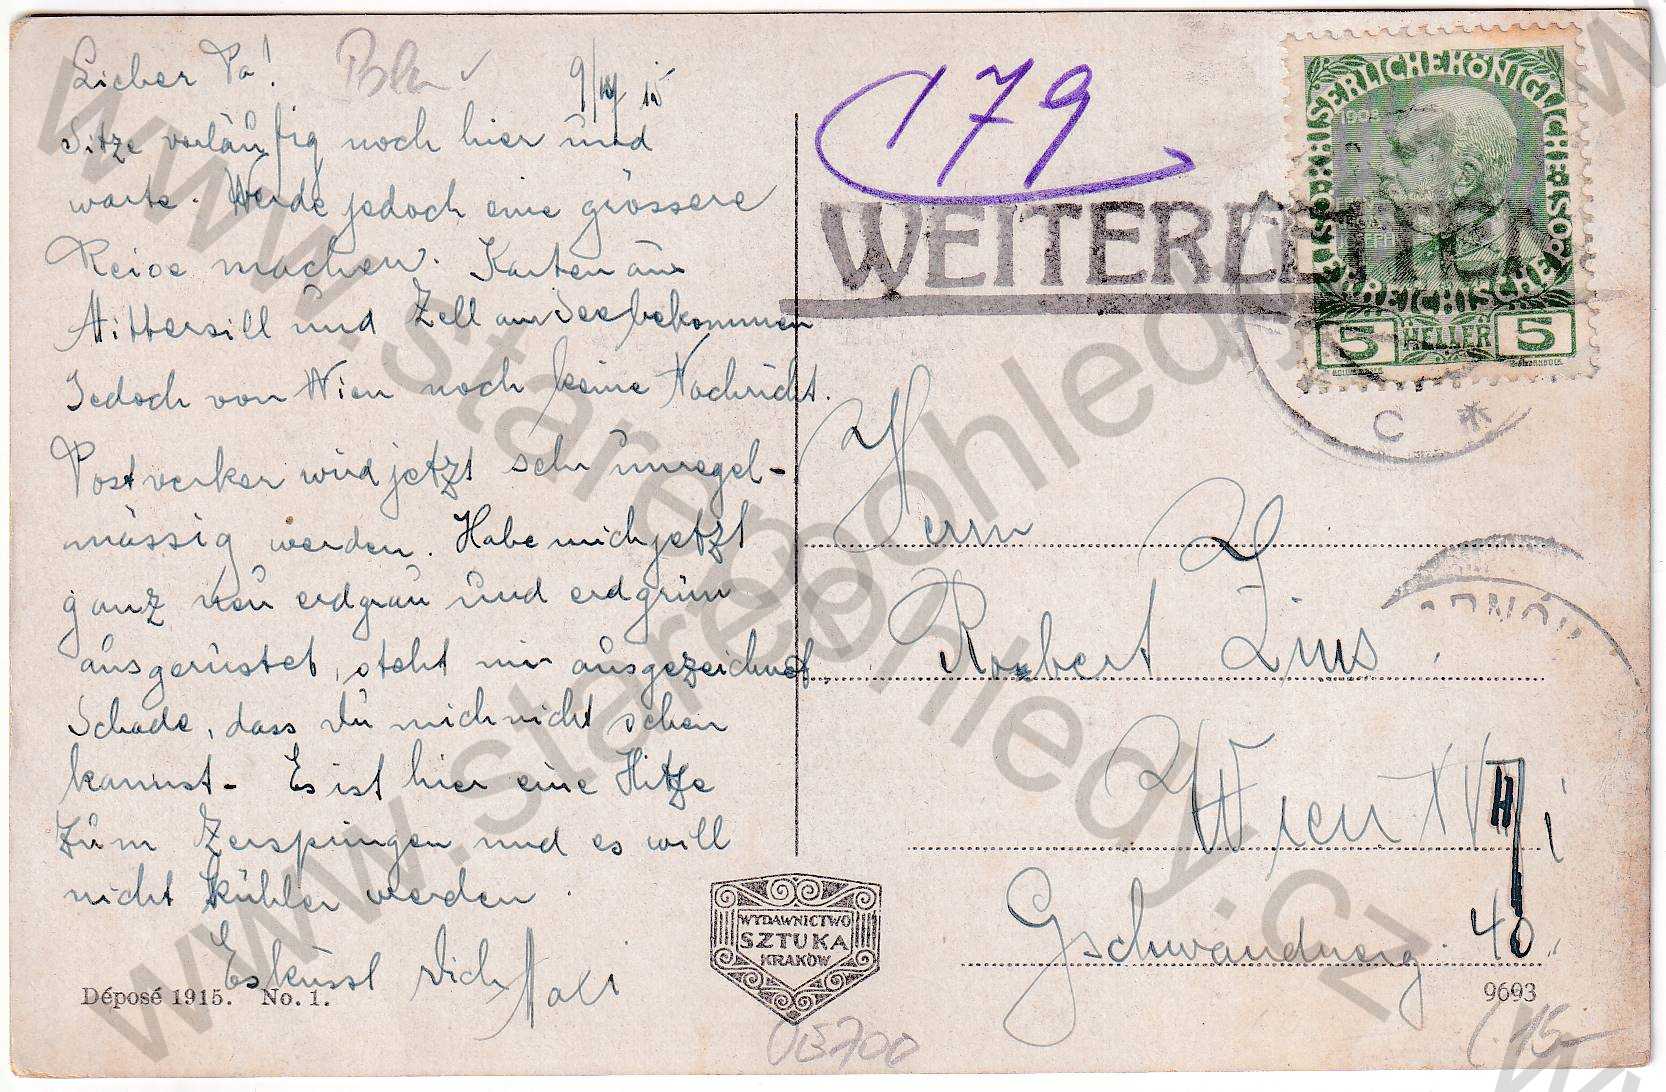 Lieber Pa!
Sitze vorläufig noch hier und
warte. Werde jedoch eine grössere
Reise machen. Karten aus
Mittersill und Zell am See bekommen
Jedoch von Wien noch keine Nachricht.
Postverker wird jetzt sehr unregel-
mässig werden. Habe mich jetzt
ganz neu erdgrau und erdgrün
ausgerüstet, steht mir ausgezeichnet.
Schade, dass Du mich nicht sehen
kannst - Es ist hier eine Hitze
zum Zerspringen und es will
nicht kühler werden.
Es küsst Dich
Déposé 1915. No. 1.
WYDAWNICTWO
SZTUKA
KRAKÓW
179
WEITERLEITEN
KAISERLICHE KÖNIGLICHE ÖSTERREICHISCHE POST
1908
5 HELLER 5
C *
Herrn
Robert Zins.
Wien XVIII/1
Gschwandnerg. 40.
9693
15-
www.starepohledy.cz
www.starepohledy.cz